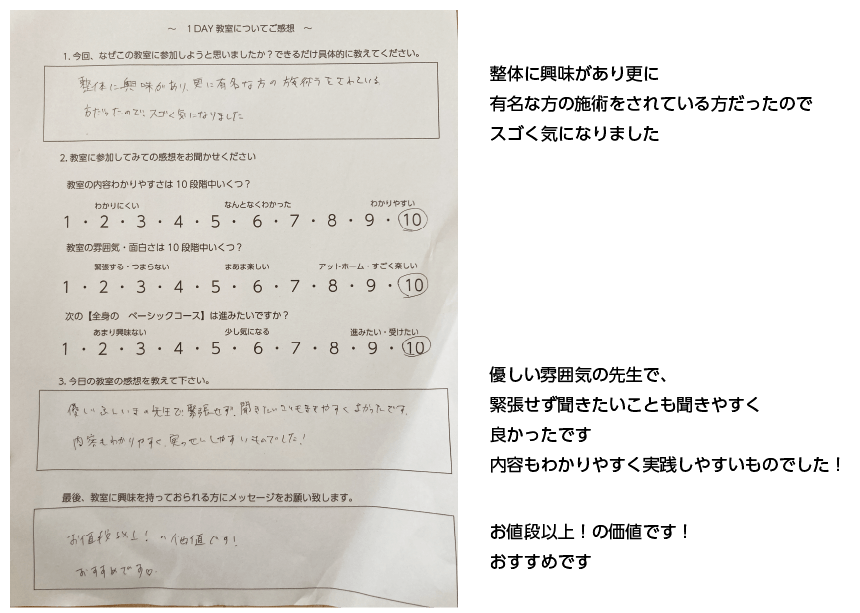 ～ 1DAY 教室についてご感想 ～
1. 今回、なぜこの教室に参加しようと思いましたか？できるだけ具体的に教えてください。
整体に興味があり、更に有名な方の施術うをされている
方だったので、スゴく気になりました
2. 教室に参加してみての感想をお聞かせください
教室の内容わかりやすさは 10 段階中いくつ？
わかりにくい なんとなくわかった わかりやすい
1 ・ 2 ・ 3 ・ 4 ・ 5 ・ 6 ・ 7 ・ 8 ・ 9 ・ 10
教室の雰囲気・面白さは 10 段階中いくつ？
緊張する・つまらない まあま楽しい アットホーム・すごく楽しい
1 ・ 2 ・ 3 ・ 4 ・ 5 ・ 6 ・ 7 ・ 8 ・ 9 ・ 10
次の【全身の ベーシックコース】は進みたいですか？
あまり興味ない 少し気になる 進みたい・受けたい
1 ・ 2 ・ 3 ・ 4 ・ 5 ・ 6 ・ 7 ・ 8 ・ 9 ・ 10
3. 今日の教室の感想を教えて下さい。
優しいふんいきの先生で緊張せず、聞きたいこともききやすくよかったです。
内容もわかりやすく、実っせんしやすいものでした！
最後、教室に興味を持っておられる方にメッセージをお願い致します。
お値段以上！の価値です！
おすすめです♡
整体に興味があり更に
有名な方の施術をされている方だったので
スゴく気になりました
優しい雰囲気の先生で、
緊張せず聞きたいことも聞きやすく
良かったです
内容もわかりやすく実践しやすいものでした！
お値段以上！の価値です！
おすすめです